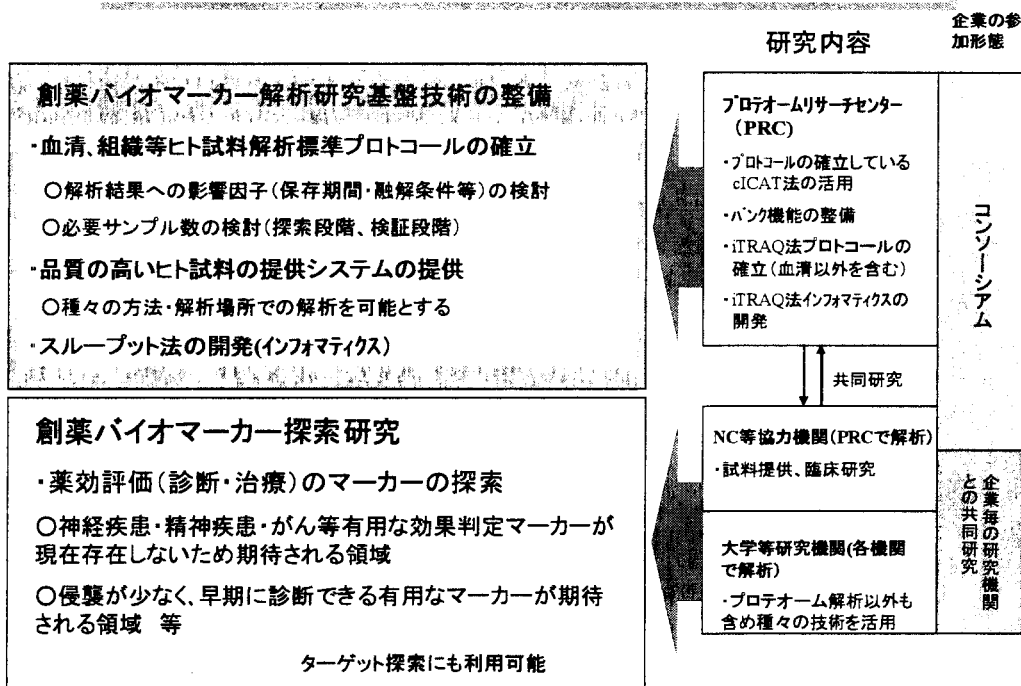 研究内容
企業の参
加形態
創薬バイオマーカー解析研究基盤技術の整備
・血清、組織等ヒト試料解析標準プロトコールの確立
○解析結果への影響因子(保存期間・融解条件等)の検討
○必要サンプル数の検討(探索段階、検証段階)
・品質の高いヒト試料の提供システムの提供
○種々の方法・解析場所での解析を可能とする
・スループット法の開発(インフォマティクス)
創薬バイオマーカー探索研究
・薬効評価(診断・治療)のマーカーの探索
○神経疾患・精神疾患・がん等有用な効果判定マーカーが
現在存在しないため期待される領域
○侵襲が少なく、早期に診断できる有用なマーカーが期待
される領域 等
ターゲット探索にも利用可能
プロテオームリサーチセンター
(PRC)
・プロトコールの確立している
cICAT法の活用
・バンク機能の整備
・iTRAQ法プロトコールの
確立(血清以外を含む)
・iTRAQ法インフォマティクスの
開発
共同研究
NC等協力機関(PRCで解析)
・試料提供、臨床研究
大学等研究機関(各機関
で解析)
・プロテオーム解析以外も
含め種々の技術を活用
コンソーシアム
企業毎の研究機関
との共同研究